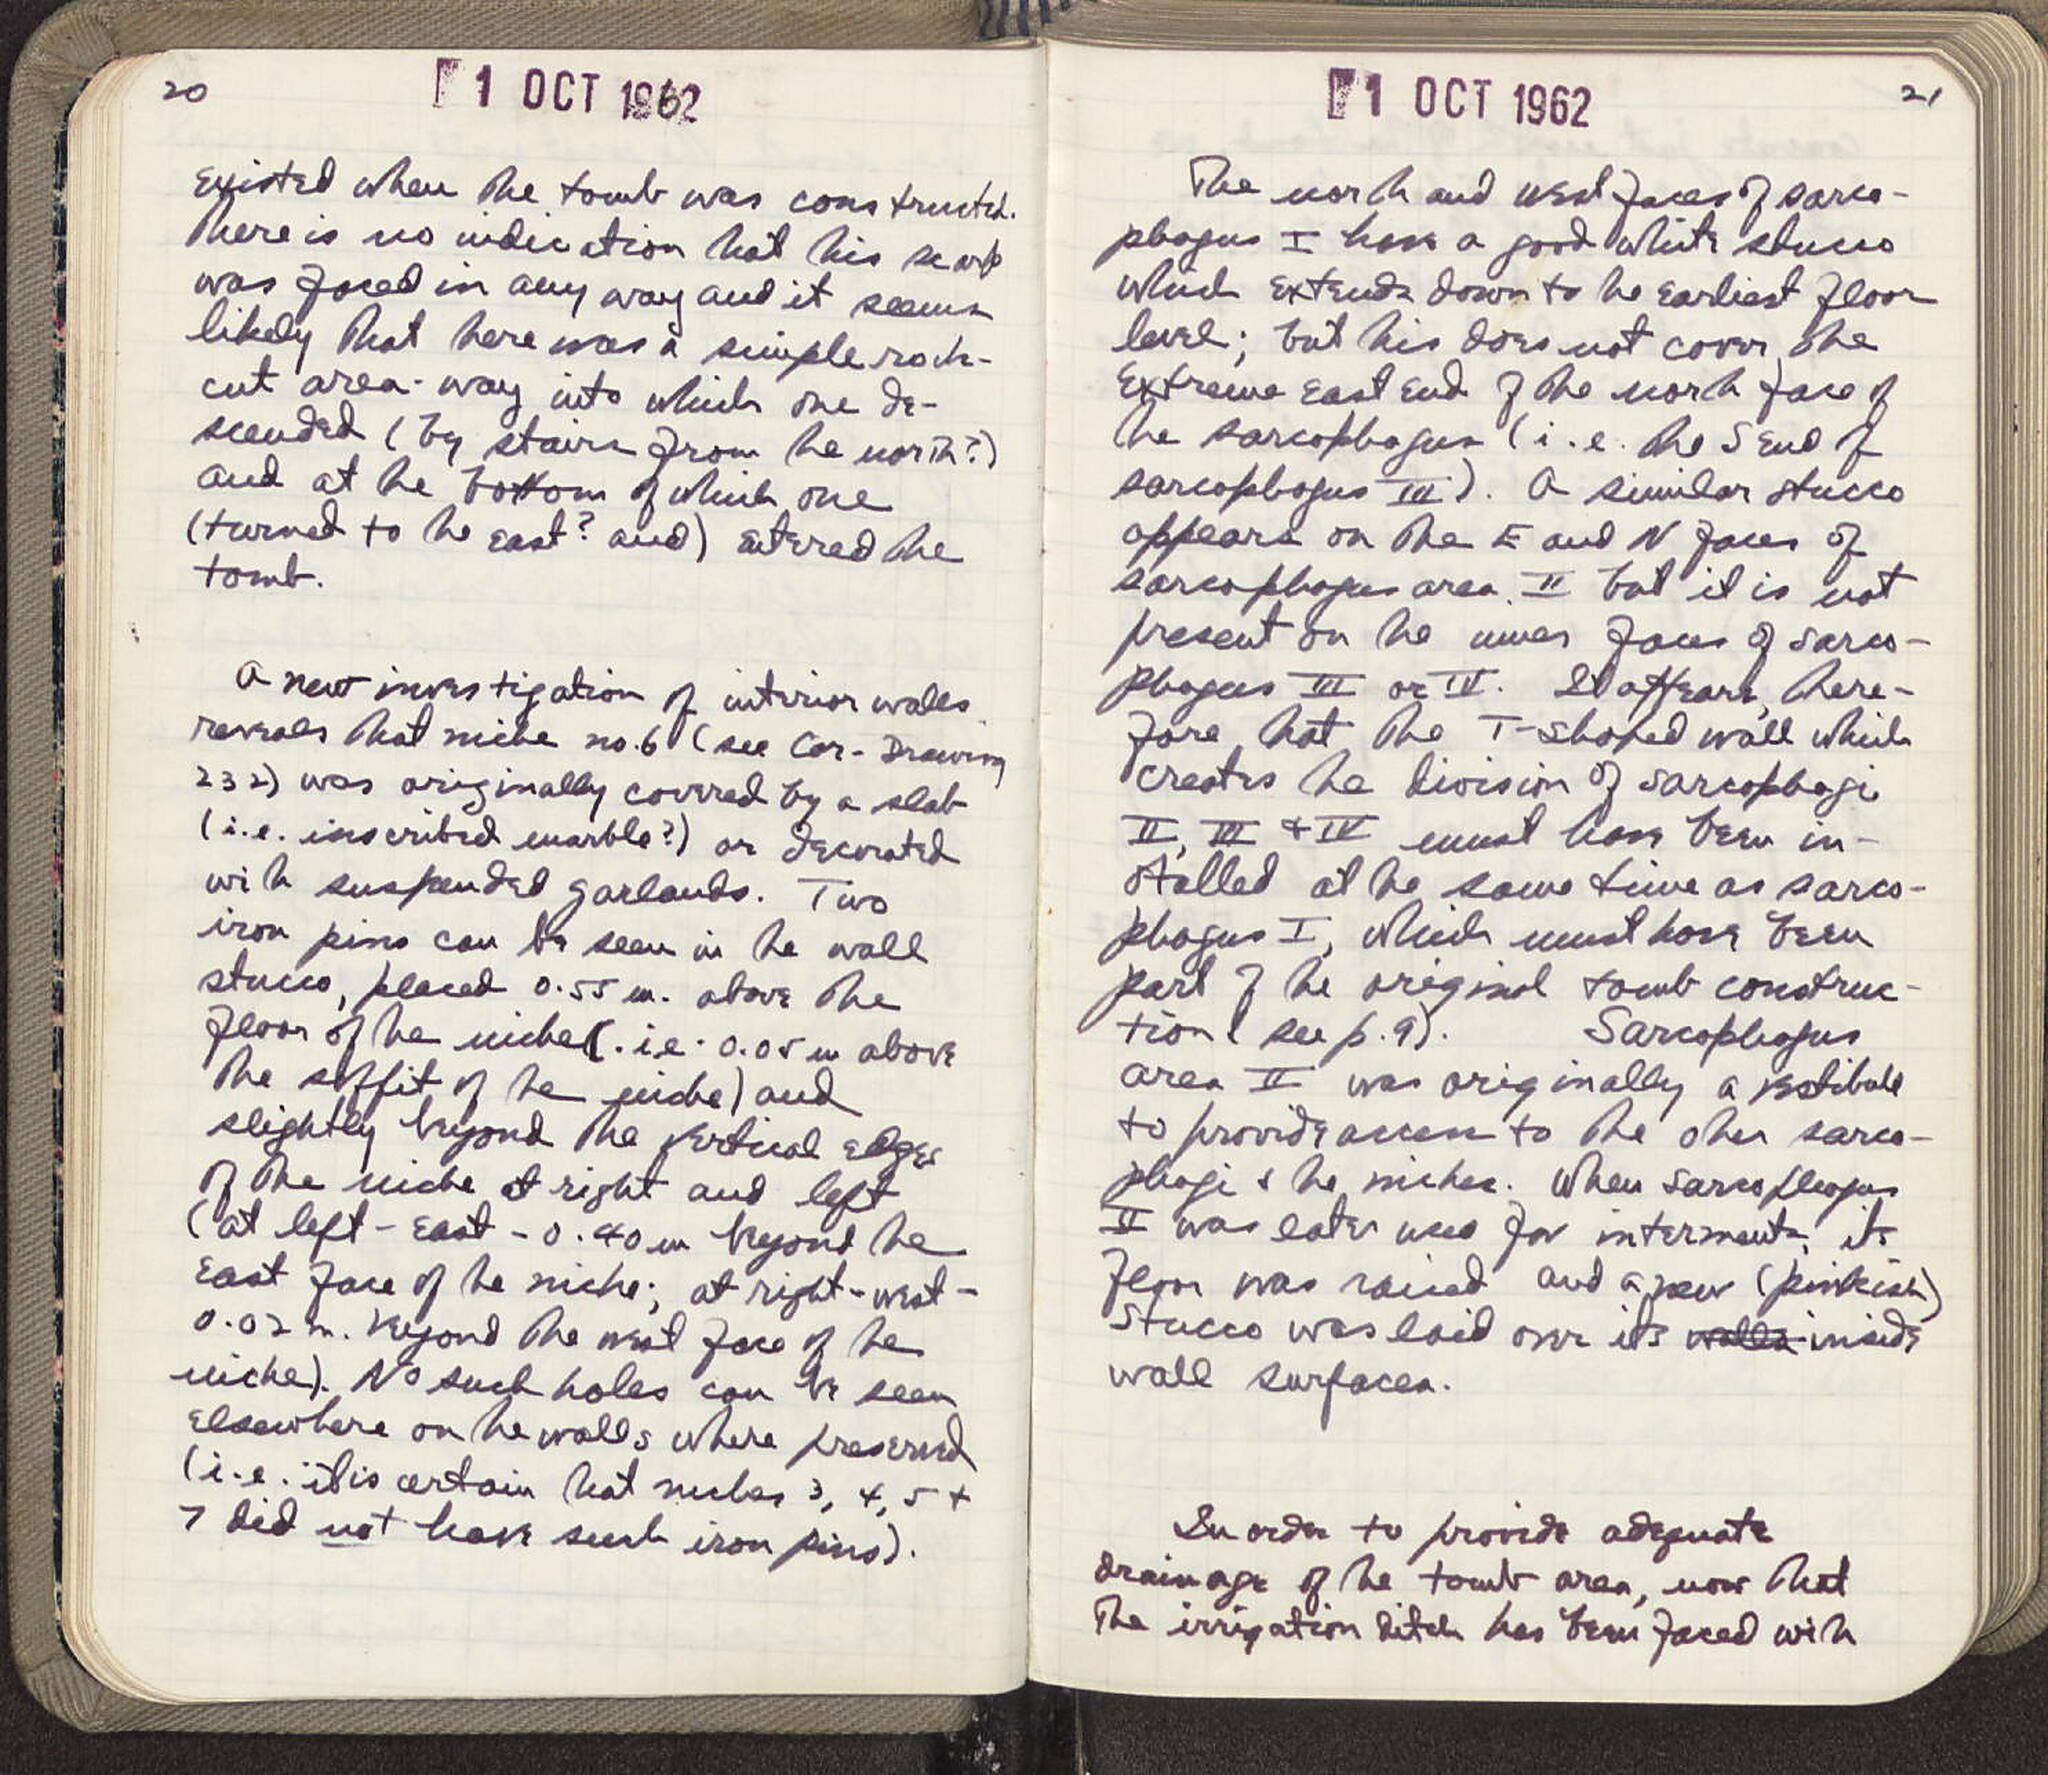 20
1 OCT 1962
existed when the tomb was constructed.
There is no indication that this scarp
was faced in any way and it seems
likely that there was a simple rock-
cut area-way into which one de-
scended (by stairs from the north?)
and at the bottom of which one
(turned to the east? and) entered the
tomb.
A new investigation of interior walls
reveals that niche no. 6 (see Cor-Drawing
232) was originally covered by a slab
(i.e. inscribed marble?) or decorated
with suspended garlands. Two
iron pins can be seen in the wall
stucco, placed 0.55 m. above the
floor of the niche (.i.e. 0.05 m above
the soffit of the niche) and
slightly beyond the vertical edges
of the niche at right and left
(at left - east - 0.40 m beyond the
east face of the niche; at right - west -
0.02 m. beyond the west face of the
niche). No such holes can be seen
elsewhere on the walls where preserved
(i.e. it is certain that niches 3, 4, 5 +
7 did not have such iron pins).
1 OCT 1962
21
The north and west faces of sarco-
phagus I have a good white stucco
which extends down to the earliest floor
level; but this does not cover the
extreme east end of the north face of
the sarcophagus (i.e. the S end of
sarcophagus III). A similar stucco
appears on the E and N faces of
sarcophagus area II but it is not
present on the inner faces of sarco-
phagus III or IV. It appears, there-
fore, that the T-shaped wall which
creates the division of sarcophagi
II, III + IV must have been in-
stalled at the same time as sarco-
phagus I, which must have been
part of the original tomb construc-
tion (see p. 9). Sarcophagus
area II was originally a vestibule
to provide access to the other sarco-
phagi & the niches. When sarcophagus
II was later used for interments, its
floor was raised and a new (pinkish)
stucco was laid over its walls inside
wall surfaces.
In order to provide adequate
drainage of the tomb area, now that
the irrigation ditch has been faced with